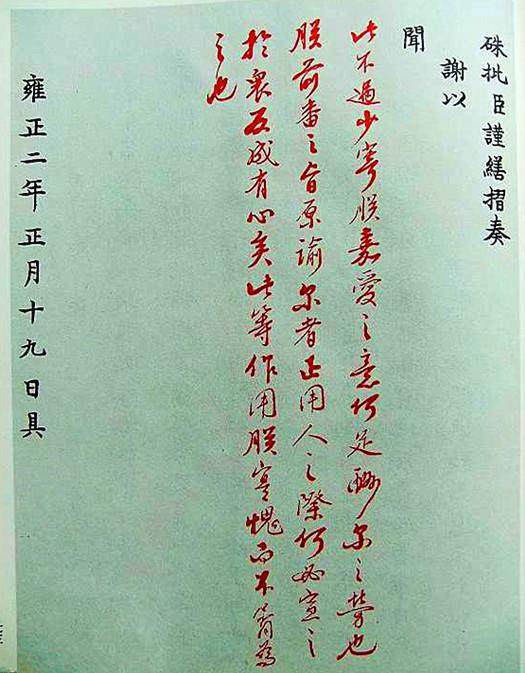 硃批臣謹繕摺奏
謝以
聞
此不過少寄朕嘉愛之意何足酬尔之勞也
朕前番之旨原諭尔者正用人之際何必宣之
於衆反成有心矣此等作用朕寔愧而不屑為
之也
雍正二年正月十九日具